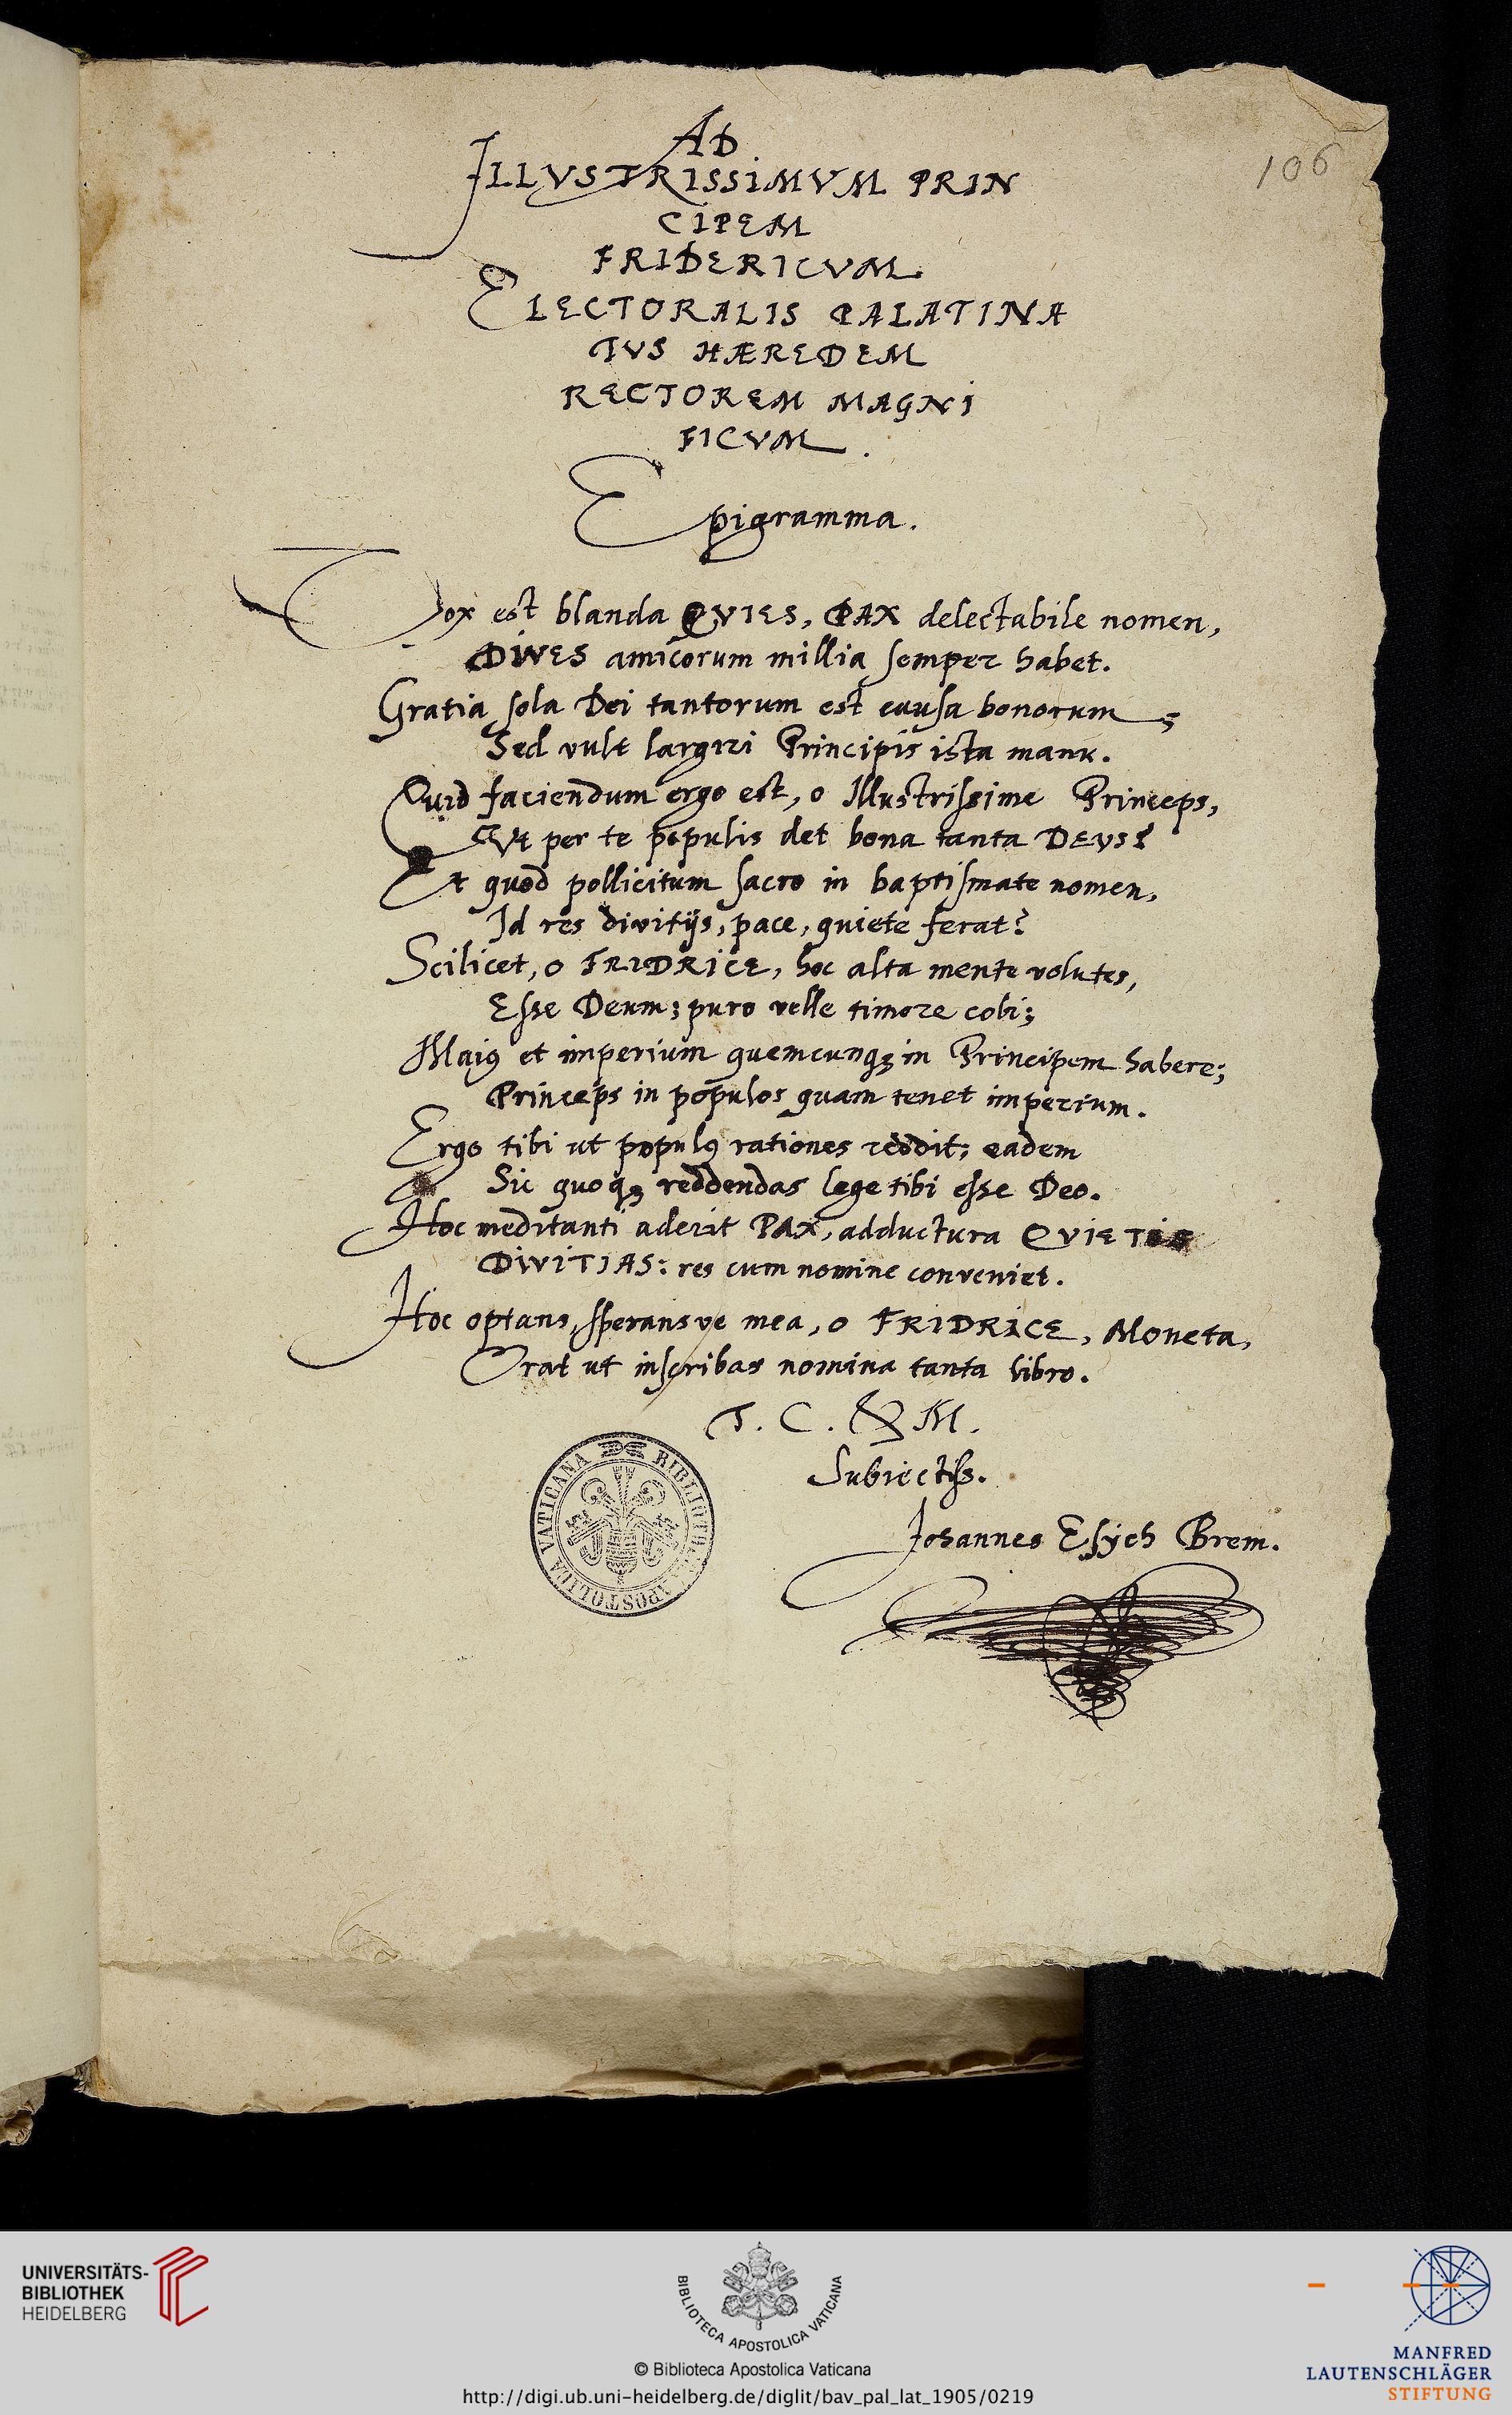 106
AD
ILLVSTRISSIMVM PRIN
CIPEM
FRIDERICVM.
ELECTORALIS PALATINA
TVS HÆREDEM
RECTOREM MAGNI
FICVM.
Epigramma.
Vox est blanda QVIES, PAX delectabile nomen,
DIVES amicorum millia semper habet.
Gratia sola Dei tantorum est causa bonorum;
Sed vult largiri Principis ista manu.
Quid faciendum ergo est, o Illustrissime Princeps,
Vt per te populis det bona tanta DEVS?
Et quod pollicitum sacro in baptismate nomen,
Id res divitijs, pace, quiete ferat?
Scilicet, o FRIDRICE, hoc alta mente volutes,
Esse Deum; puro velle timore coli;
Maiꝯ et imperium quemcunqꝫ in Principem habere;
Princeps in populos quam tenet imperium.
Ergo tibi ut populꝯ rationes reddit; eadem
Sic quoqꝫ reddendas lege tibi esse Deo.
Hoc meditanti aderit PAX, adductura QVIETIS
DIVITIAS: res cum nomine conveniet.
Hoc optans, speransve mea, o FRIDRICE, Moneta,
Orat ut inscribas nomina tanta libro.
T. C. & M.
Subiectiss.
Johannes Esych Brem.
BIBLIOTECA APOSTOLICA VATICANA
UNIVERSITÄTS-
BIBLIOTHEK
HEIDELBERG
BIBLIOTECA APOSTOLICA VATICANA
© Biblioteca Apostolica Vaticana
http://digi.ub.uni-heidelberg.de/diglit/bav_pal_lat_1905/0219
MANFRED
LAUTENSCHLÄGER
STIFTUNG